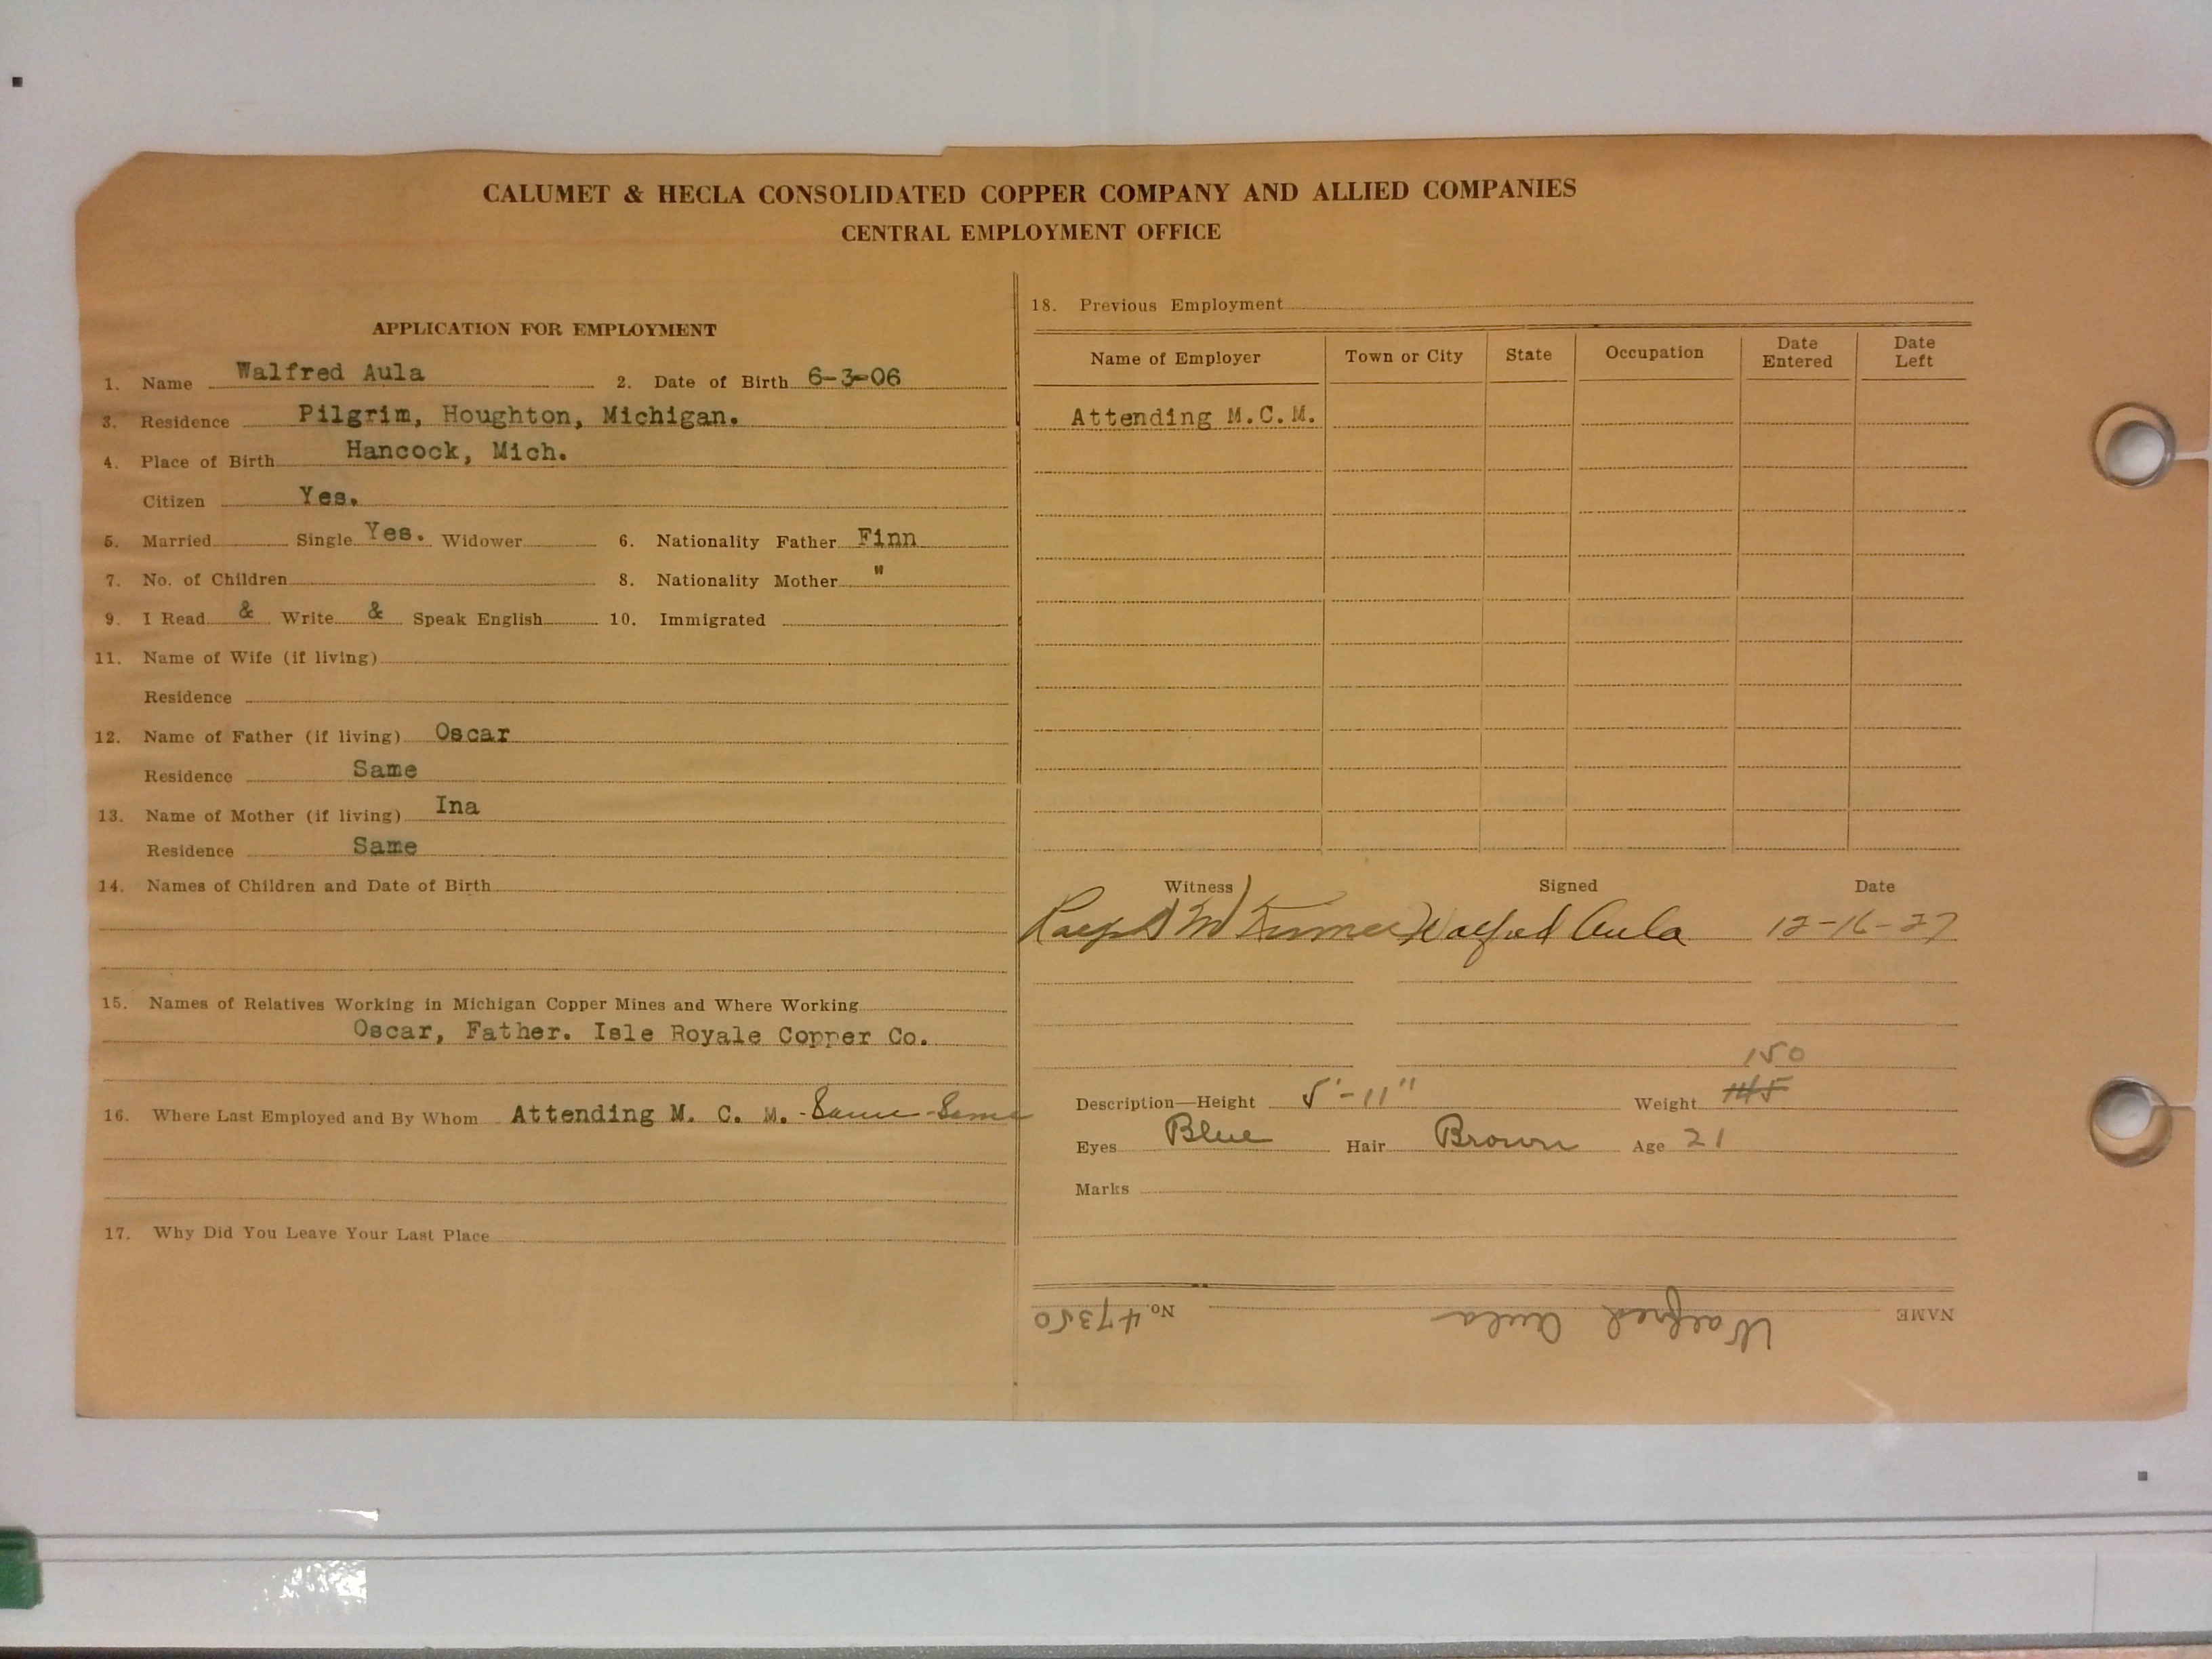 CALUMET & HECLA CONSOLIDATED COPPER COMPANY AND ALLIED COMPANIES
CENTRAL EMPLOYMENT OFFICE
APPLICATION FOR EMPLOYMENT
1. Name Walfred Aula 2. Date of Birth 6-3-06
3. Residence Pilgrim, Houghton, Michigan.
4. Place of Birth Hancock, Mich.
Citizen Yes.
5. Married Single Yes. Widower 6. Nationality Father Finn
7. No. of Children 8. Nationality Mother "
9. I Read & Write & Speak English 10. Immigrated
11. Name of Wife (if living)
Residence
12. Name of Father (if living) Oscar
Residence Same
13. Name of Mother (if living) Ina
Residence Same
14. Names of Children and Date of Birth
15. Names of Relatives Working in Michigan Copper Mines and Where Working
Oscar, Father. Isle Royale Copper Co.
16. Where Last Employed and By Whom Attending M. C. M. - Same - Same
17. Why Did You Leave Your Last Place
18. Previous Employment
Name of Employer Town or City State Occupation Date Entered Date Left
Attending M.C.M.
Witness Signed Date
Ralph M Walfred Aula 12-16-27
150
Description—Height 5'-11" Weight 145
Eyes Blue Hair Brown Age 21
Marks
NAME Walfred Aula No. 47350